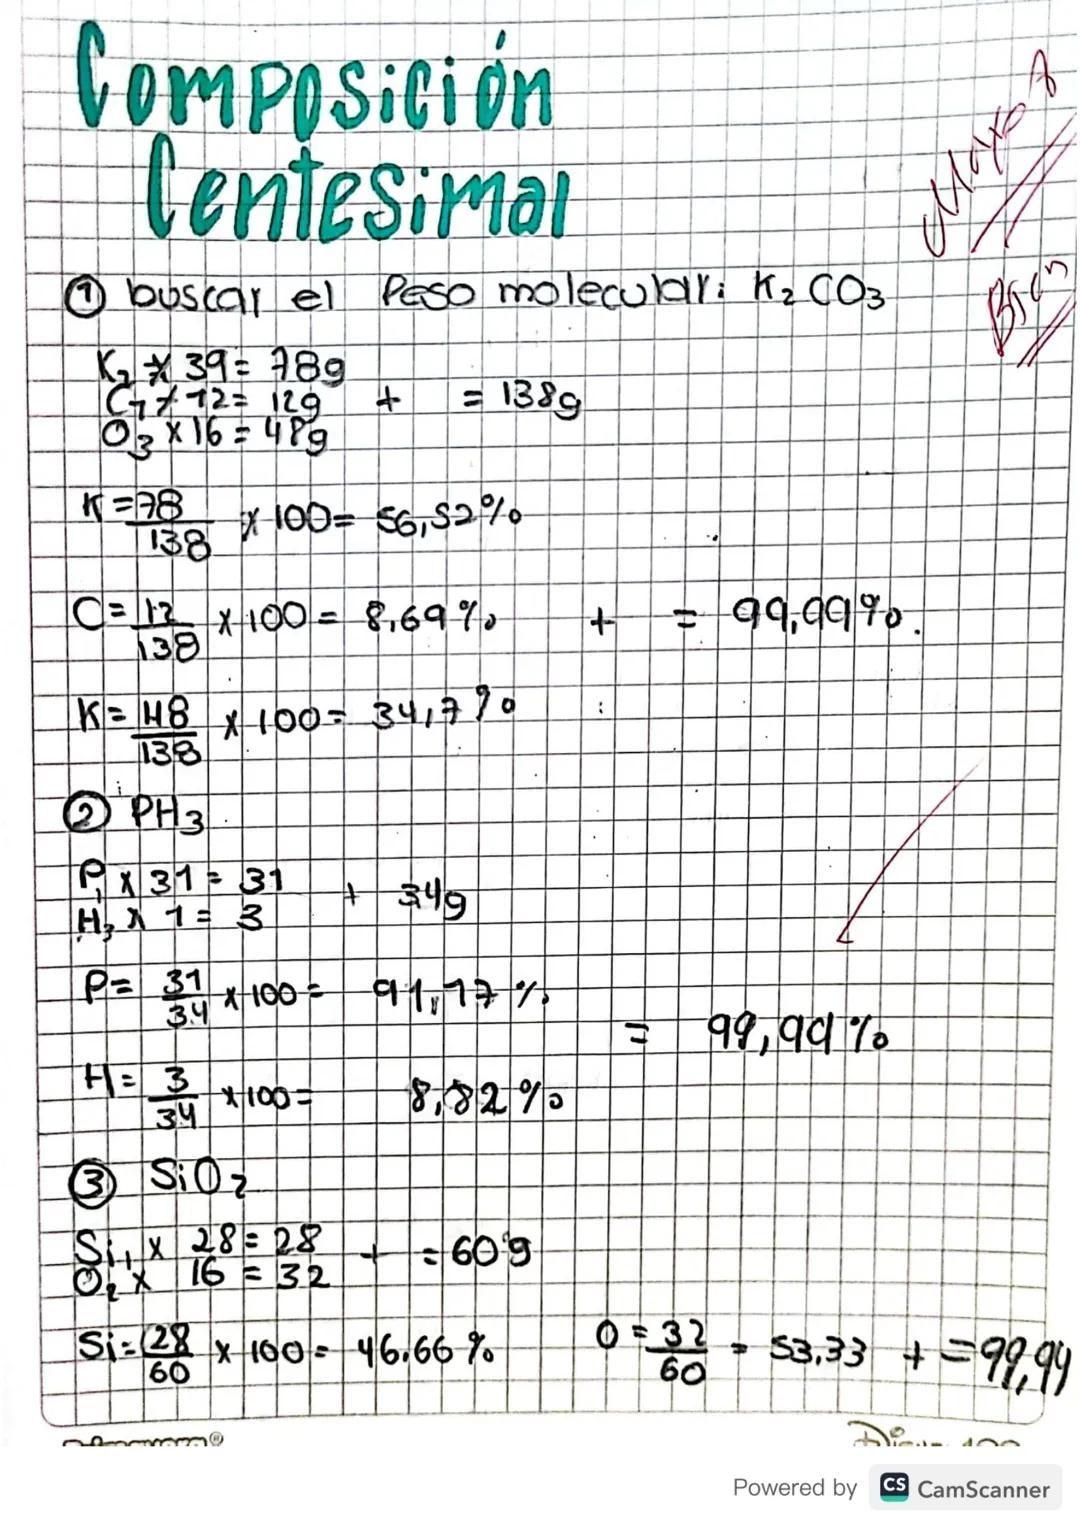 Composición
Centesimal
Mayo 8
① buscar el Peso molecular: K₂CO₃
Bien
K₂ x 39 = 78g
C₁ x 12 = 12g + = 138g
O₃ x 16 = 48g
K = 78/138 x 100 = 56,52%
C = 12/138 x 100 = 8,69% + = 99,99%.
K = 48/138 x 100 = 34,7%
② PH₃
P₁ x 31 = 31 + 34g
H₃ x 1 = 3
P = 31/34 x 100 = 91,17%
= 99,99%
H = 3/34 x 100 = 8,82%
③ SiO₂
Si₁ x 28 = 28 + = 60g
O₂ x 16 = 32
Si = 28/60 x 100 = 46.66% O = 32/60 = 53,33 + = 99,99
Powered by CS CamScanner